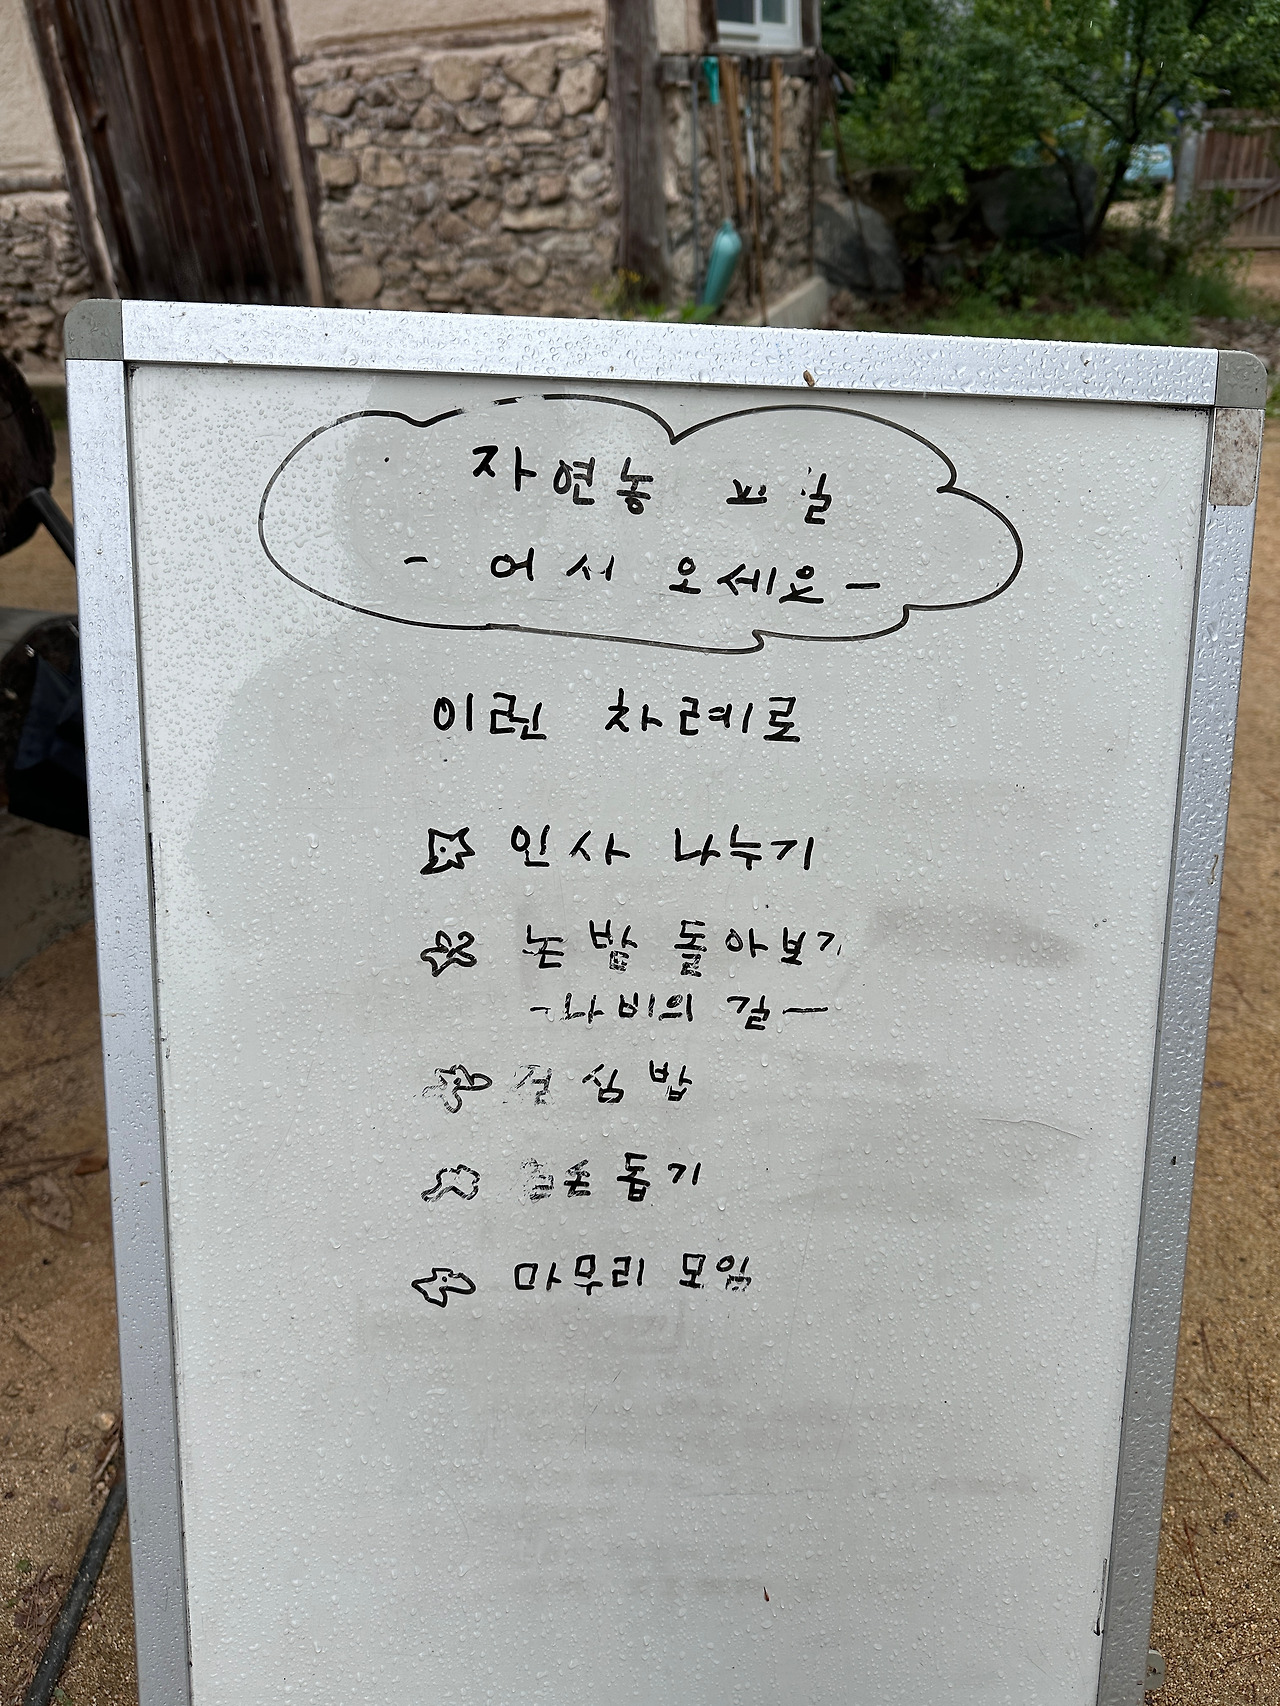 자연농 교실
- 어서 오세요 -
이런 차례로
인사 나누기
논밭 돌아보기
- 나비의 길 -
점심밥
일손돕기
마무리 모임